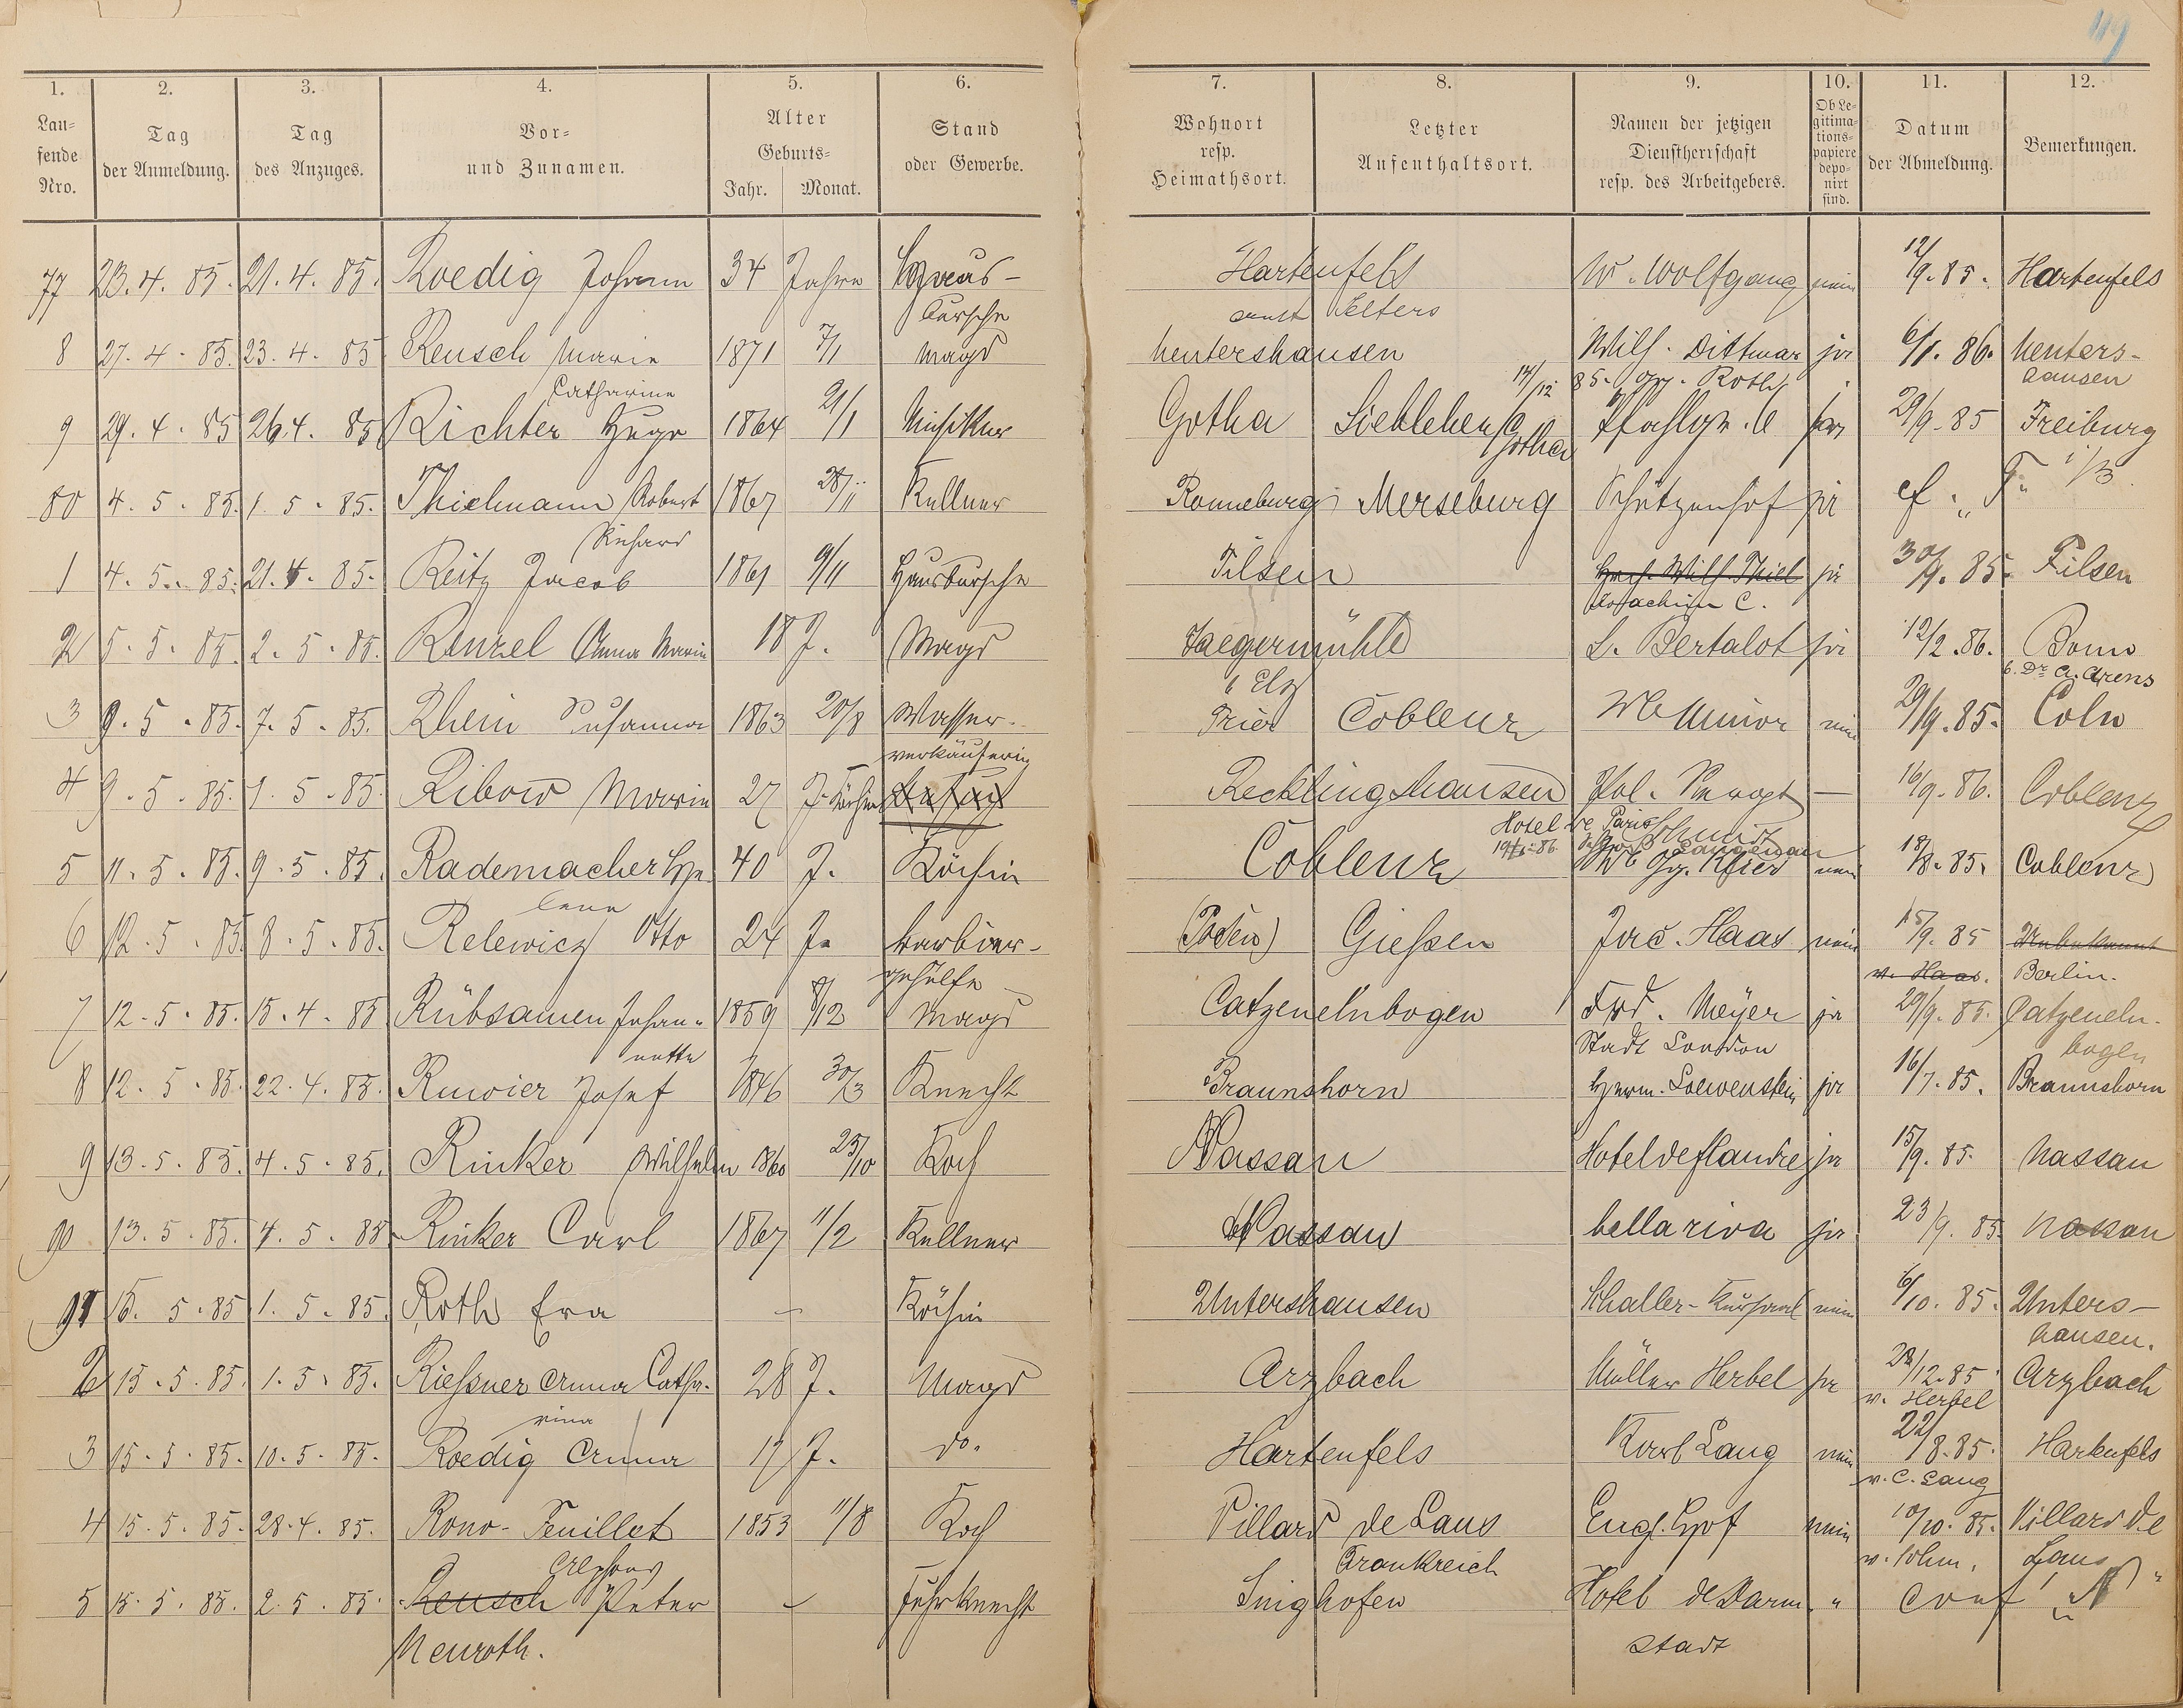 119
1. 2. 3. 4. 5. 6. 7. 8. 9. 10. 11. 12.
Lau-
fende
Nro.
Tag
der Anmeldung.
Tag
des Anzuges.
Vor-
und Zunamen.
Alter
Geburts-
Jahr. Monat.
Stand
oder Gewerbe.
Wohnort
resp.
Heimathsort.
Letzter
Aufenthaltsort.
Namen der jetzigen
Dienstherrschaft
resp. des Arbeitgebers.
Ob Le-
gitima-
tions-
papiere
depo-
nirt
sind.
Datum
der Abmeldung.
Bemerkungen.
77 23.4.85. 21.4.85. Roedig Johann 34 Jahre Haus- Hartenfels W. Wolfgang nein 12/9.85. Hartenfels
bursche amt Selters
8 27.4.85. 23.4.85 Reusch Marie 1871 7/1 Magd Nentershausen Wilh. Dittmar ja 6/1.86. Nenters-
Catharine 14/12 85. Roth hausen
9 29.4.85 26.4.85 Richter Hugo 1864 21/1 Musiker Gotha Siebleben 29/9.85 Freiburg
Gotha
80 4.5.85. 1.5.85. Thielmann Robert 1867 28/11 Kellner Ronneburg Merseburg Schützenhof ja cf. T.
Richard
1 4.5.85. 21.4.85. Reitz Jacob 1861 9/11 Hausbursche Filsen Wilh. Thiel ja 30/9.85. Filsen
Joachim C.
2 5.5.85. 2.5.85. Renzel Anna Marie 18 J. Magd Jaegermühle L. Bertalot ja 12/2.86. Bonn
b. Elz b. Dr. A. Arens
3 9.5.85. 7.5.85. Rhein Susanna 1863 20/8 Wasser- Trier Coblenz nein 29/9.85. Coln
verkäuferin
4 9.5.85. 1.5.85. Ribow Marie 27 J. Köchin Recklinghausen — 16/9.86. Coblenz
Hotel de Paris
5 11.5.85. 9.5.85. Rademacher He- 40 J. Köchin Coblenz nein 18/8.85. Coblenz
lene
6 12.5.85. 8.5.85. Relewicz Otto 24 J. Barbier- (Posen) Giessen Jac. Haas nein 15/9.85 Unbekannt
gehülfe v. Haas. Berlin.
7 12.5.85. 15.4.85 Rübsamen Johan- 1859 8/12 Magd Catzenelnbogen Frd. Meyer ja 29/9.85. Catzeneln-
nette Stadt London bogen
8 12.5.85. 22.4.85. Josef 1846 30/3 Knecht Braunshorn Herm. Loewenstein ja 16/7.85. Braunshorn
9 13.5.85. 4.5.85. Rinker Wilhelm 1860 25/10 Koch Nassau Hotel de flandre ja 15/9.85. Nassau
90 13.5.85. 4.5.85 Rinker Carl 1867 11/2 Kellner Nassau bella riva ja 23/9.85. Nassau
91 15.5.85 1.5.85. Roth Eva — Köchin Untershausen Schaller-Kursaal nein 6/10.85. Unters-
hausen.
2 15.5.85. 1.5.85. Riessner Anna Catha- 28 J. Magd Arzbach Müller Herbel ja 28/12.85 Arzbach
rina v. Herbel
3 15.5.85. 10.5.85. Roedig Anna 17 J. do. Hartenfels Karl Lang nein 22/8.85. Hartenfels
v. C. Lang
4 15.5.85. 28.4.85. Rono-Feuillet 1853 11/8 Koch Villard de Lans Engl. Hof nein 10/10.85. Villard de
Alphons Frankreich Lans
5 15.5.85. 2.5.85. Reusch Peter — Fuhrknecht Singhofen Hotel de Darm- " conf N
Neuroth. stadt